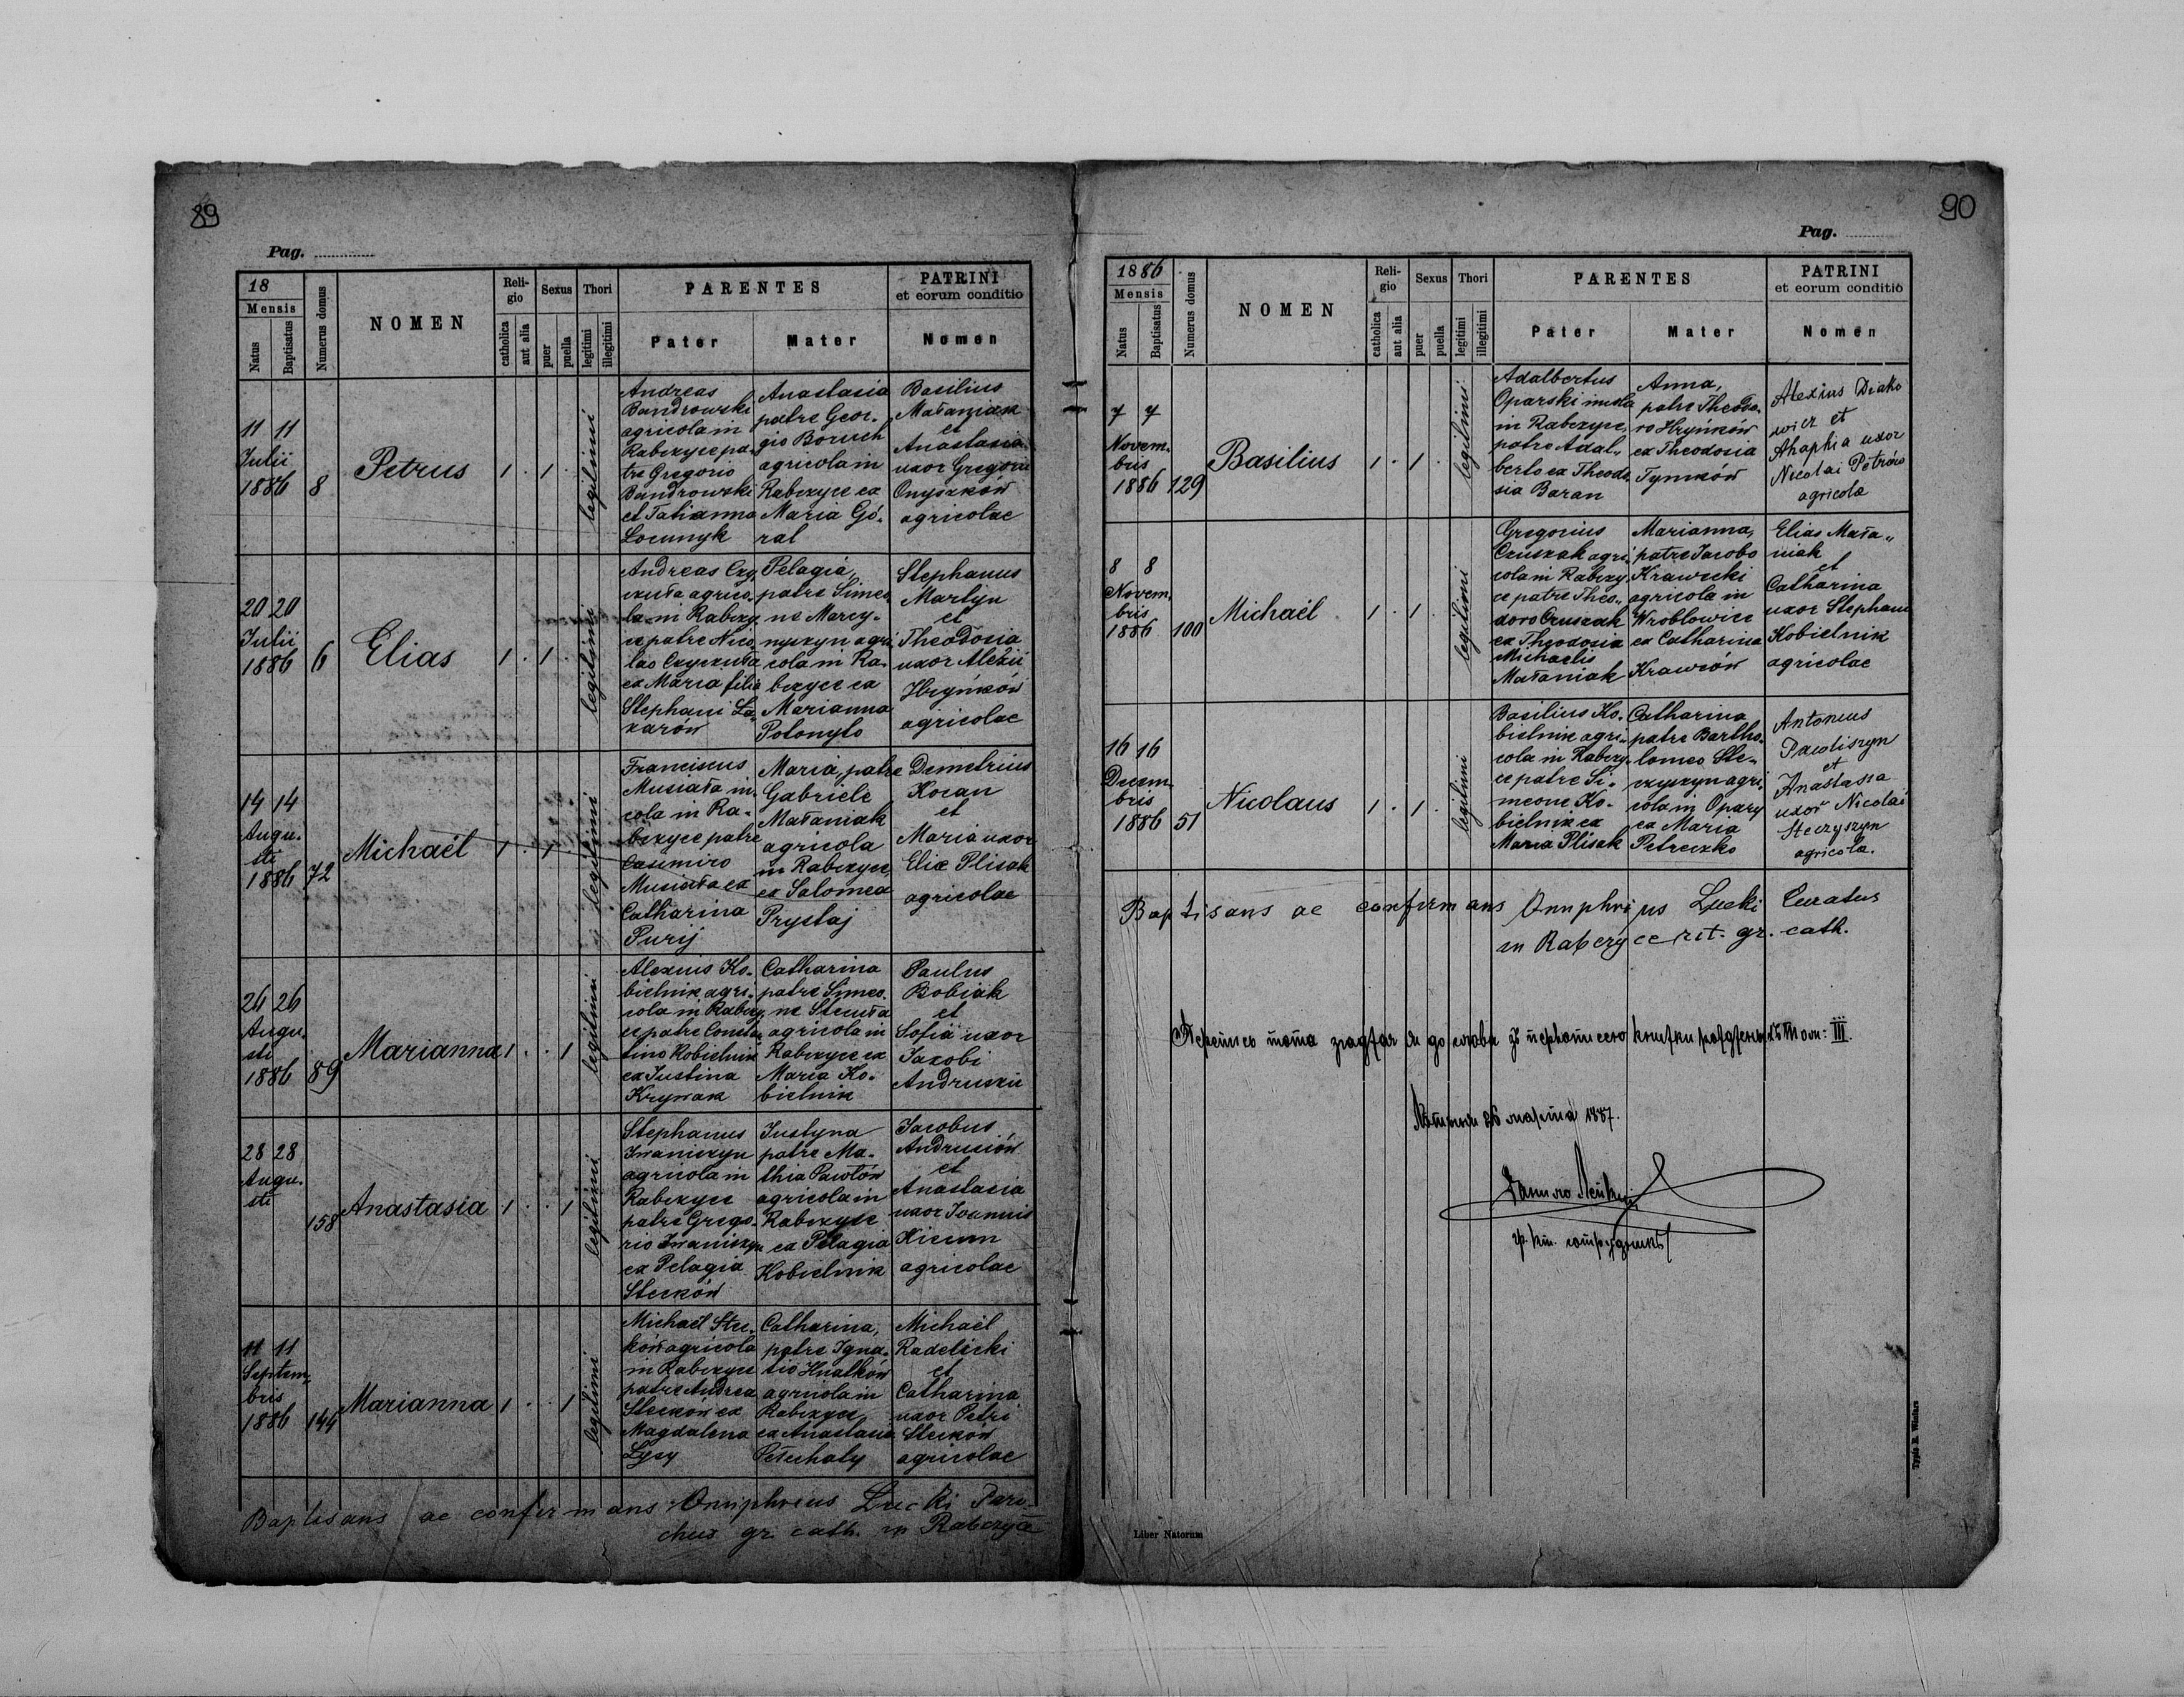 89
Pag.
18
Mensis
Natus
Baptisatus
Numerus domus
NOMEN
Reli-
gio
catholica
aut alia
Sexus
puer
puella
Thori
legitimi
illegitimi
PARENTES
Pater
Mater
PATRINI
et eorum conditio
Nomen
11 11
Julii
1886
8
Petrus
1 . 1 .
legitimi
Andreas
Bandrowski
agricola in
Rabczyce pa-
tre Gregorio
Bandrowski
et Tatianna
Locunyk
Anastasia
patre Geor-
gio Boruch
agricola in
Rabczyce ex
Maria Gó-
ral
Basilius
Mataniak
et
Anastasia
uxor Gregorii
Onyszków
agricolae
20 20
Julii
1886
6
Elias
1 . 1 .
legitimi
Andreas Czy
czuła agrico-
la in Rabczy
ce patre Nico
lao Czyczuła
ex Maria filia
Stephani La
zarów
Pelagia,
patre Simeo
ne Marcy-
nyszyn agri
cola in Ra-
bczyce ex
Marianna
Potonyło
Stephanus
Martyn
et
Theodosia
uxor Alexii
Hryńków
agricolae
14 14
Augu-
sti
1886
72
Michaël
1 . 1 .
legitimi
Franciscus
Musiała in-
cola in Ra-
bczyce patre
Casimiro
Musiała ex
Catharina
Purij
Maria, patre
Gabriele
Mataniak
agricola
in Rabczyce,
ex Salomea
Prystaj
Demetrius
Kocan
et
Maria uxor
Eliæ Plisak
agricolae
26 26
Augu-
sti
1886
89
Marianna
1 . . 1
legitimi
Alexius Ko-
bielnik agri-
cola in Rabczy
ce patre Constan
tino Kobielnik
ex Justina
Krywak
Catharina
patre Simeo-
ne Stecuła
agricola in
Rabczyce ex
Maria Ko-
bielnik
Paulus
Bobiak
et
Sofia uxor
Jacobi
28 28
Augu-
sti
158
Anastasia
1 . . 1
legitimi
Stephanus
Iwaniszyn
agricola in
Rabczyce
patre Grego-
rio Iwaniszyn
ex Pelagia
Stecków
Justyna
patre Ma-
thia Pawłów
agricola in
Rabczyce
ex Pelagia
Kobielnik
Jacobus
Andrusiów
et
Anastasia
uxor Joannis
agricolae
11 11
Septem-
bris
1886
144
Marianna
1 . . 1
legitimi
Michaël Stec-
ków agricola
in Rabczyce
patre Andrea
Steckow ex
Magdalena
Łysy
Catharina,
patre Igna-
tio Hnatków
agricola in
Rabczyce,
ex Anastasia
Pełechaty
Michaël
Radelicki
et
Catharina
uxor Petri
Steckow
agricolae
Baptisans ac confirmans Onuphrius Łucki Paro-
chus gr. cath. in Rabczyce
90
Pag.
1886
Mensis
Natus
Baptisatus
Numerus domus
NOMEN
Reli-
gio
catholica
aut alia
Sexus
puer
puella
Thori
legitimi
illegitimi
PARENTES
Pater
Mater
PATRINI
et eorum conditio
Nomen
7 7
Novem-
bris
1886
129
Basilius
1 . 1 .
legitimi
Adalbertus
Oparski incola
in Rabczyce,
patre Adal-
berto ex Theodo
sia Baran
Anna,
patre Theodo-
ro Hryńków
ex Theodosia
Tymków
Alexius Diako
wicz et
Ahaphia uxor
Nicolai Petrów
agricolæ
8 8
Novem-
bris
1886
100
Michaël
1 . 1 .
legitimi
Gregorius
Czuszak agri-
cola in Rabczy
ce patre Theo-
doro Czuszak
ex Theodosia
Michaelis
Mataniak
Marianna,
patre Jacobo
Krawecki
agricola in
Wroblowice
ex Catharina
Krawców
Elias Mata-
niak
et
Catharina
uxor Stephani
Kobielnik
agricolae
16 16
Decem-
bris
1886
51
Nicolaus
1 . 1 .
legitimi
Basilius Ko-
bielnik agri-
cola in Rabczy-
ce patre Si-
meone Ko-
bielnik ex
Maria Plisak
Catharina
patre Bartho-
lomeo Ste-
czyszyn agri-
cola in Opary
ex Maria
Petreczko
Antonius
Pawliszyn
et
Anastasia
uxor Nicolai
Steczyszyn
agricolæ.
Baptisans ac confirmans Onuphrius Łucki Curatus
in Rabczyce rit. gr. cath.
III.
26 марта 1887.
Typis E. Winiarz
Liber Natorum